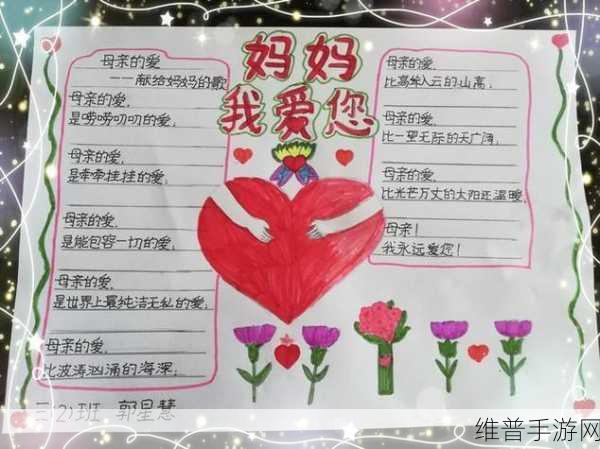 妈妈
我爱您
母亲的爱
——献给妈妈的歌
母亲的爱,
是唠唠叨叨的爱;
母亲的爱,
是牵牵挂挂的爱;
母亲的爱,
是能包容一切的爱;
母亲的爱,
是世界上最纯洁无私的爱;
母亲的爱,
比波涛汹涌的海深;
母亲的爱,
比高耸入云的山高;
母亲的爱,
比一望无际的天广阔;
母亲的爱,
比光芒万丈的太阳还温暖,
母亲!
我永远爱您!
三(2)班 郭星慧
维普手游网